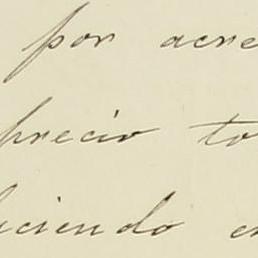 por acre
precio to
uciendo en